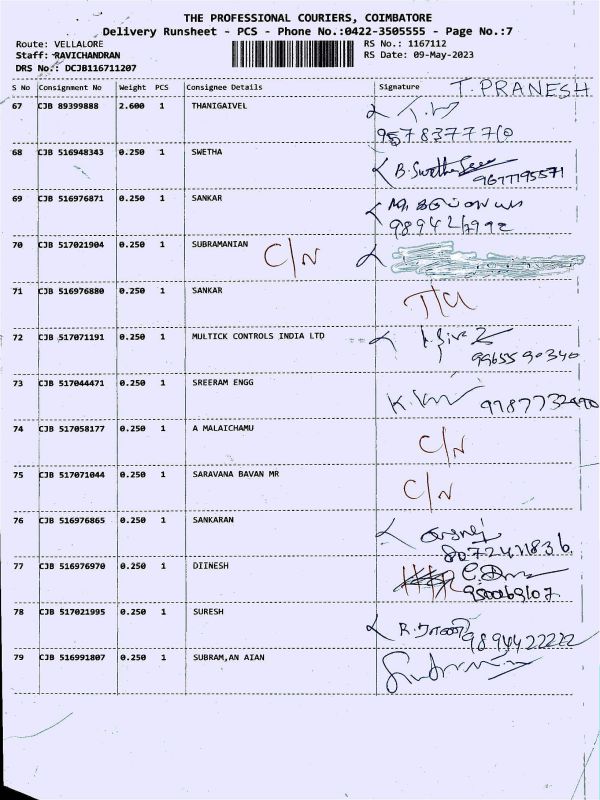 THE PROFESSIONAL COURIERS, COIMBATORE
Delivery Runsheet - PCS - Phone No.:0422-3505555 - Page No.:7
Route: VELLALORE RS No.: 1167112
Staff: RAVICHANDRAN RS Date: 09-May-2023
DRS No.: DCJB116711207
S No Consignment No Weight PCS Consignee Details Signature T. PRANESH
67 CJB 89399888 2.600 1 THANIGAIVEL
9578377710
68 CJB 516948343 0.250 1 SWETHA B. Swetha
9677195571
69 CJB 516976871 0.250 1 SANKAR
70 CJB 517021904 0.250 1 SUBRAMANIAN C/N
71 CJB 516976880 0.250 1 SANKAR
72 CJB 517071191 0.250 1 MULTICK CONTROLS INDIA LTD
9965590340
73 CJB 517044471 0.250 1 SREERAM ENGG
74 CJB 517058177 0.250 1 A MALAICHAMU C/N
75 CJB 517071044 0.250 1 SARAVANA BAVAN MR C/N
76 CJB 516976865 0.250 1 SANKARAN
77 CJB 516976970 0.250 1 DIINESH
78 CJB 517021995 0.250 1 SURESH R. ராணி 9894422222
79 CJB 516991807 0.250 1 SUBRAM,AN AIAN